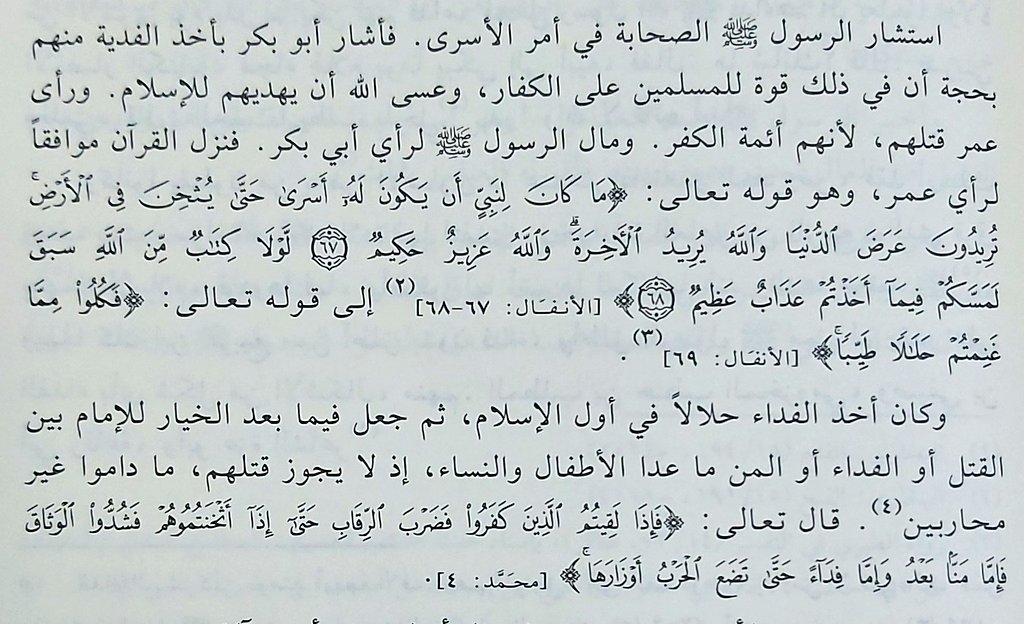 استشار الرسول ﷺ الصحابة في أمر الأسرى. فأشار أبو بكر بأخذ الفدية منهم
بحجة أن في ذلك قوة للمسلمين على الكفار، وعسى الله أن يهديهم للإسلام. ورأى
عمر قتلهم، لأنهم أئمة الكفر. ومال الرسول ﷺ لرأي أبي بكر. فنزل القرآن موافقاً
لرأي عمر، وهو قوله تعالى: ﴿مَا كَانَ لِنَبِيٍّ أَن يَكُونَ لَهُۥٓ أَسْرَىٰ حَتَّىٰ يُثْخِنَ فِي ٱلْأَرْضِۚ
تُرِيدُونَ عَرَضَ ٱلدُّنْيَا وَٱللَّهُ يُرِيدُ ٱلْأٓخِرَةَۗ وَٱللَّهُ عَزِيزٌ حَكِيمٌ ٦٧ لَّوْلَا كِتَٰبٌ مِّنَ ٱللَّهِ سَبَقَ
لَمَسَّكُمْ فِيمَآ أَخَذْتُمْ عَذَابٌ عَظِيمٌ ٦٨﴾ [الأنفَال: ٦٧-٦٨](٢) إلى قوله تعالى: ﴿فَكُلُوا۟ مِمَّا
غَنِمْتُمْ حَلَٰلًا طَيِّبًاۚ﴾ [الأنفَال: ٦٩](٣).
وكان أخذ الفداء حلالاً في أول الإسلام، ثم جعل فيما بعد الخيار للإمام بين
القتل أو الفداء أو المن ما عدا الأطفال والنساء، إذ لا يجوز قتلهم، ما داموا غير
محاربين(٤). قال تعالى: ﴿فَإِذَا لَقِيتُمُ ٱلَّذِينَ كَفَرُوا۟ فَضَرْبَ ٱلرِّقَابِ حَتَّىٰٓ إِذَآ أَثْخَنتُمُوهُمْ فَشُدُّوا۟ ٱلْوَثَاقَ
فَإِمَّا مَنًّۢا بَعْدُ وَإِمَّا فِدَآءً حَتَّىٰ تَضَعَ ٱلْحَرْبُ أَوْزَارَهَاۚ﴾ [محَمَّد: ٤].